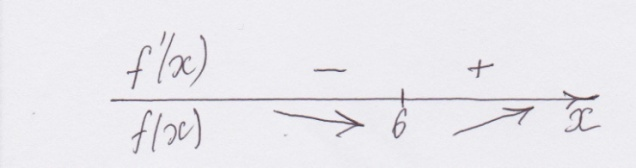 f'(x) − +
f(x) 6 x